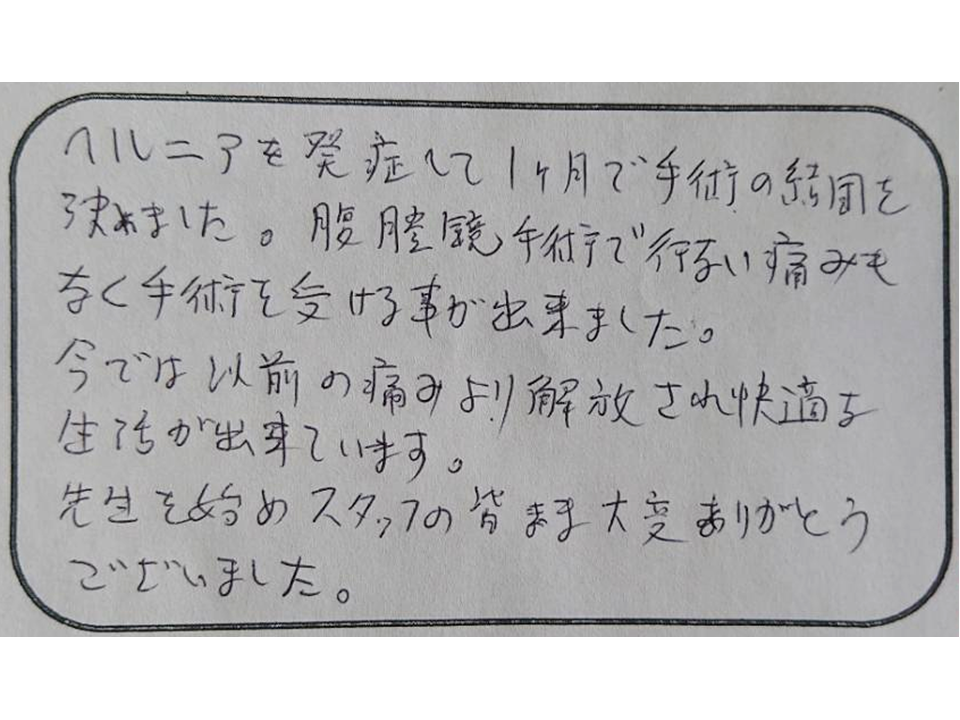 ヘルニアを発症して1ヶ月で手術の結団を
決めました。腹腔鏡手術で行ない痛みも
なく手術を受ける事が出来ました。
今では以前の痛みより解放され快適な
生活が出来ています。
先生を始めスタッフの皆さま大変ありがとう
ございました。